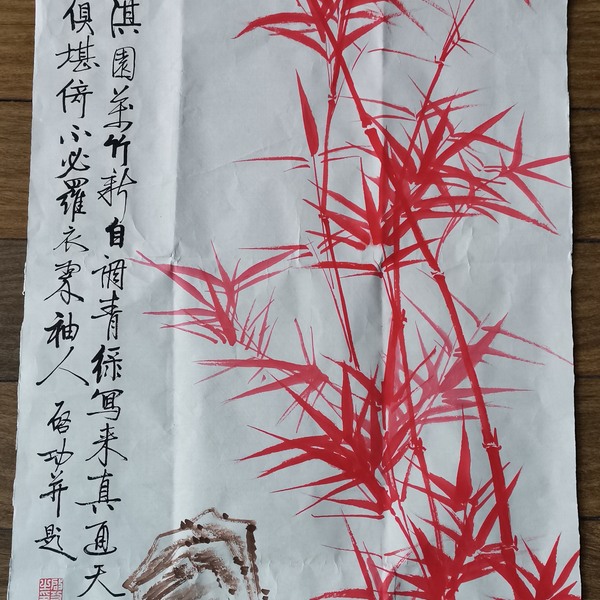 淇園萬竹新自調青綠寫来真通天
俱堪倚不必羅衣翠袖人 启功并题